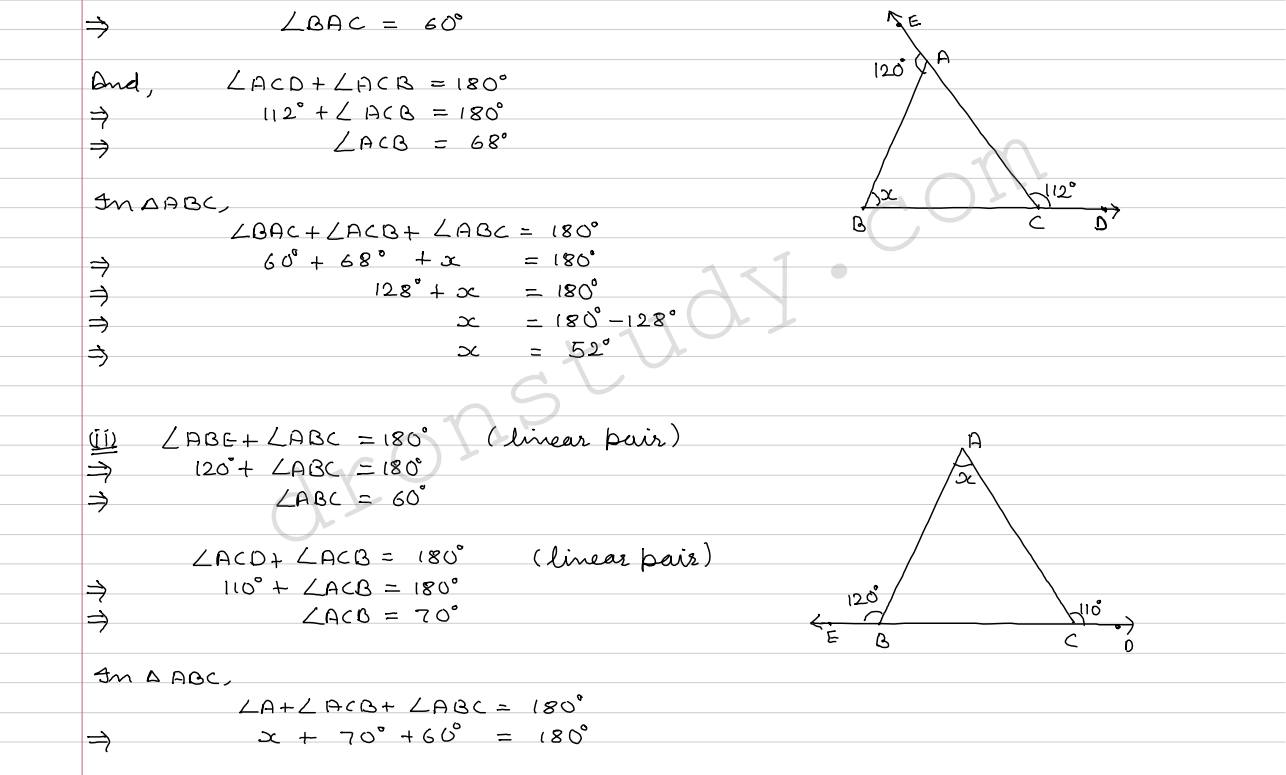 ⇒ ∠BAC = 60°
And, ∠ACD + ∠ACB = 180°
⇒ 112° + ∠ACB = 180°
⇒ ∠ACB = 68°
In △ABC,
∠BAC + ∠ACB + ∠ABC = 180°
⇒ 60° + 68° + x = 180°
⇒ 128° + x = 180°
⇒ x = 180° - 128°
⇒ x = 52°
E
A
120°
x
112°
B
C
D
(ii) ∠ABE + ∠ABC = 180° (linear pair)
⇒ 120° + ∠ABC = 180°
⇒ ∠ABC = 60°
∠ACD + ∠ACB = 180° (linear pair)
⇒ 110° + ∠ACB = 180°
⇒ ∠ACB = 70°
In △ABC,
∠A + ∠ACB + ∠ABC = 180°
⇒ x + 70° + 60° = 180°
A
x
120°
110°
E
B
C
D
dronstudy.com